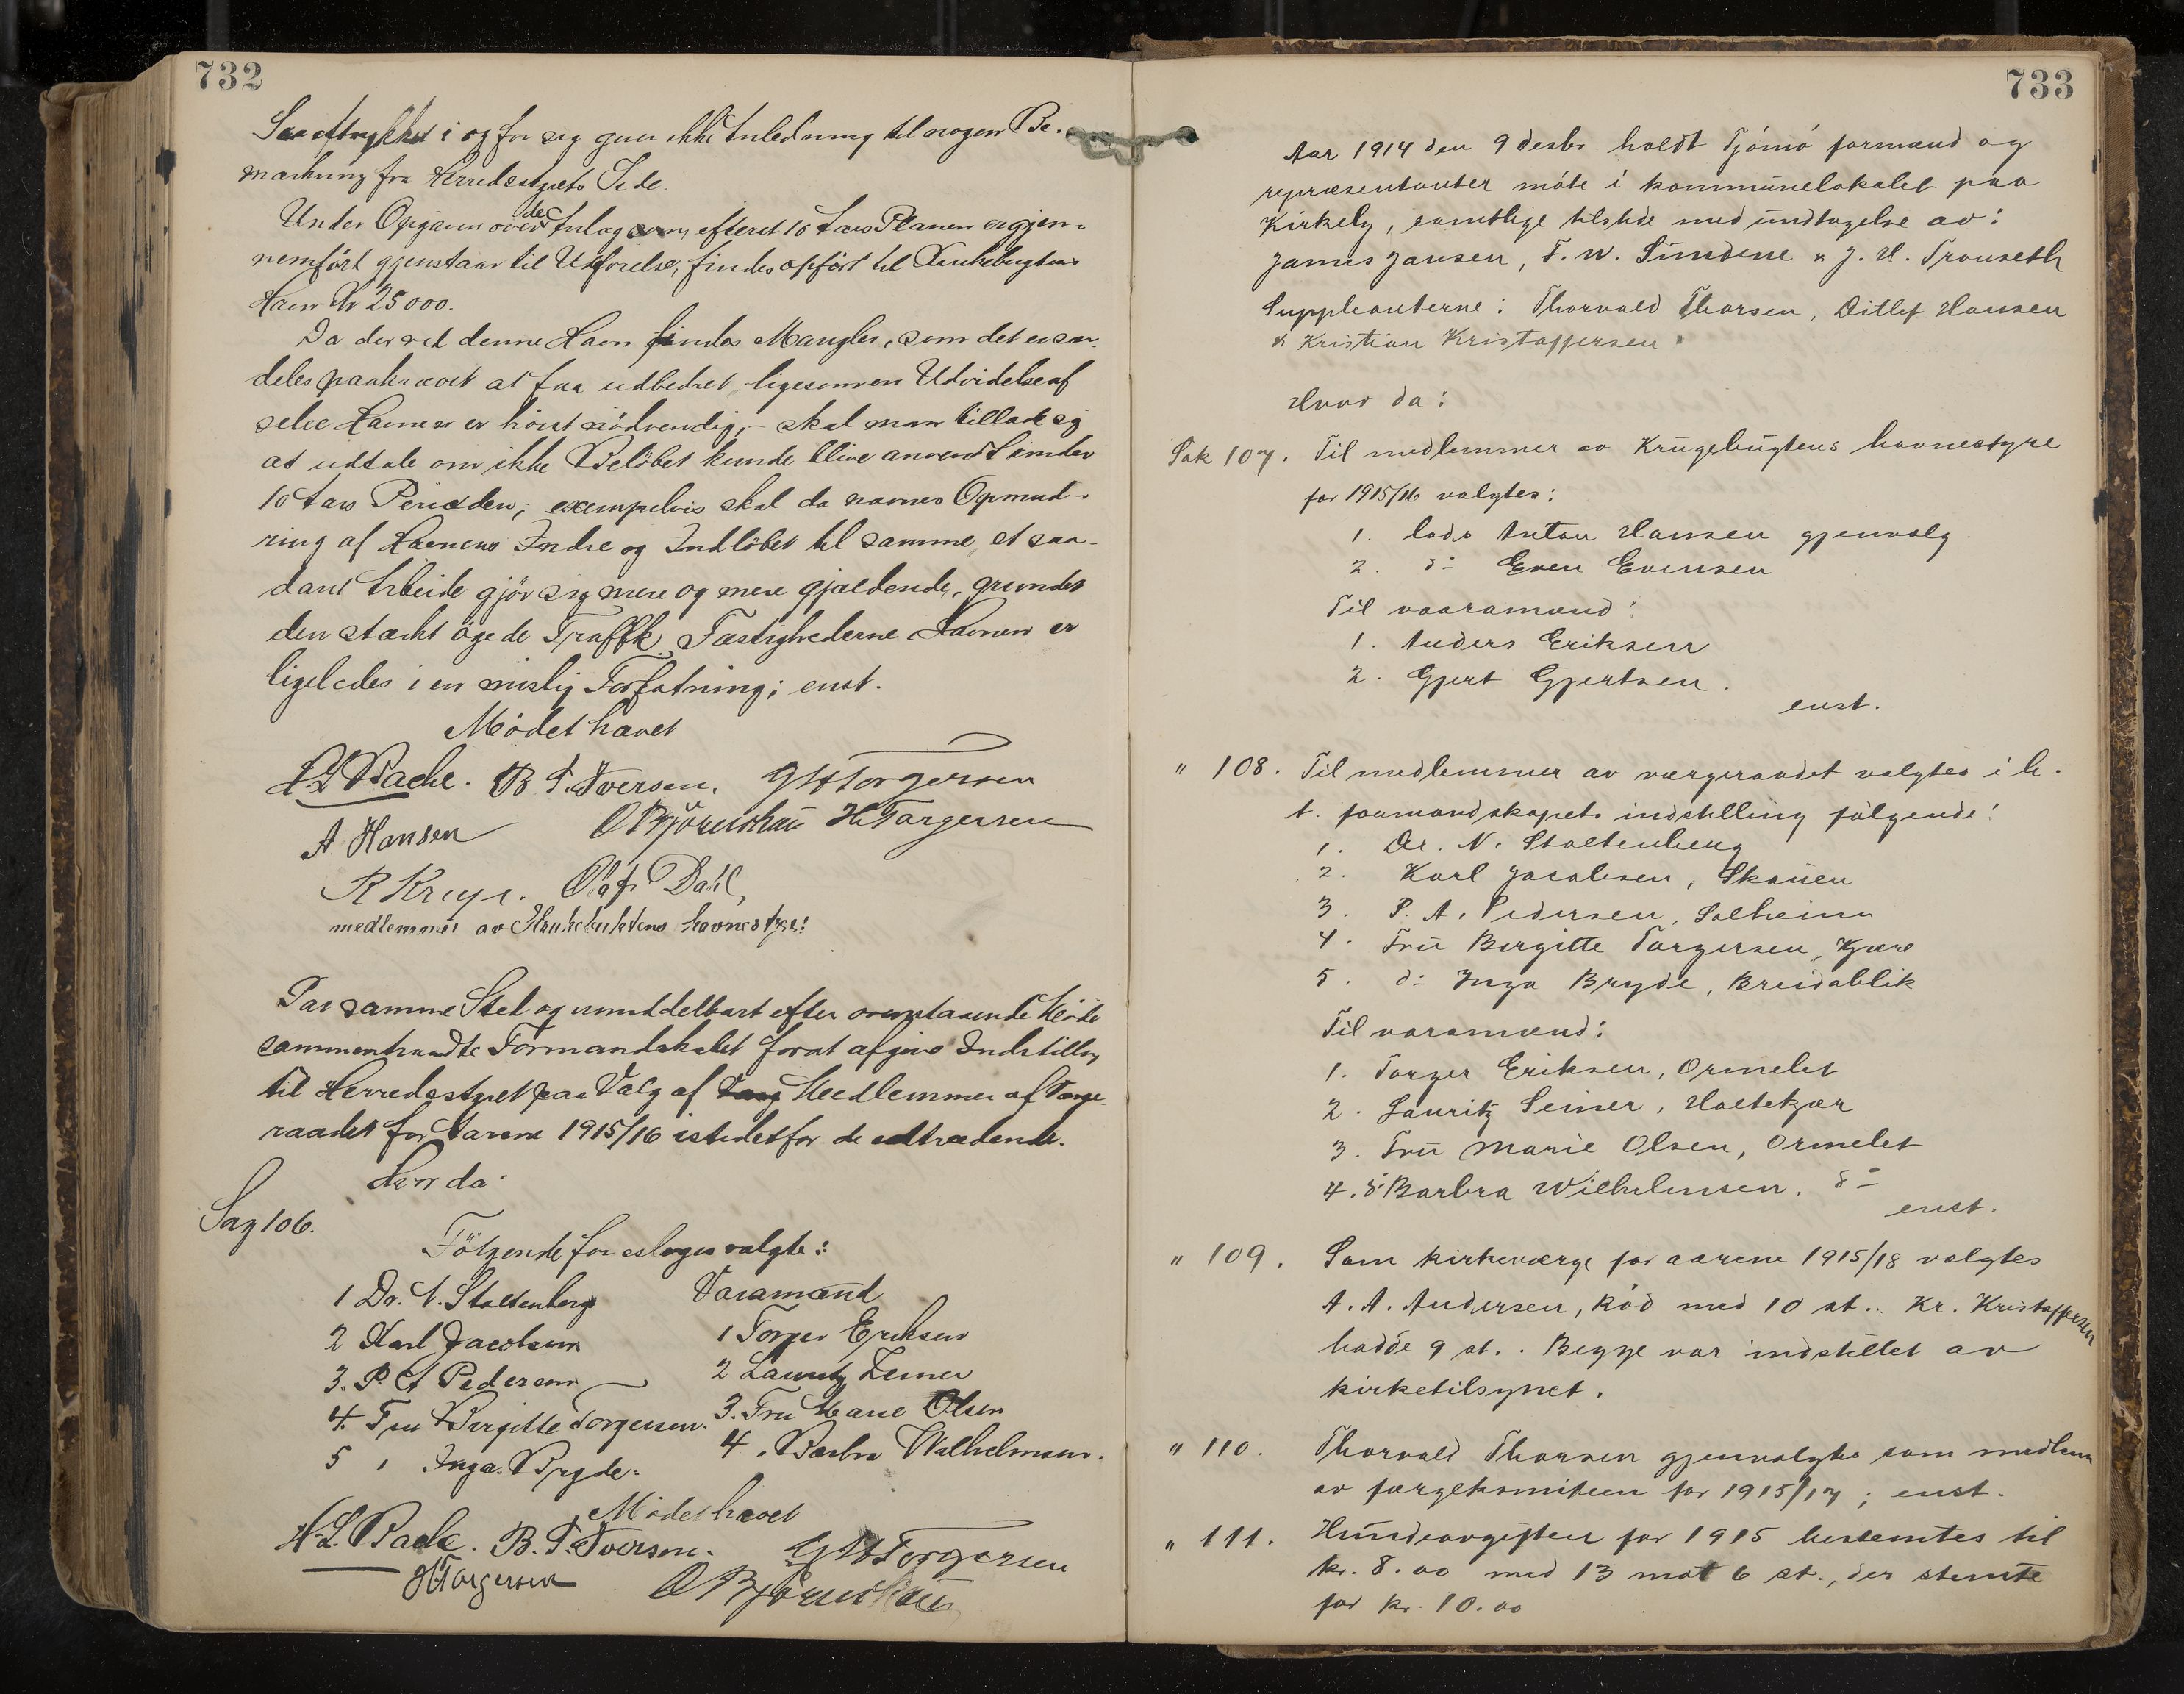 732
i og for sig giver ikke Anledning til nogen Be-
mærkning fra Herredsstyrets Side.
Under Opgaven over de Anlæg som, efterat 10 Aars Planen er gjen-
nemført gjenstaar til Udførelse, findes opført til Krukebugtens
Havn Kr 25000.
Da der ved denne Havn findes Mangler, som det er sær-
deles paakrævet at faa udbedret, ligesom en Udvidelse af
selve Havnen er høist nødvendig, – skal man tillade sig
at udtale om ikke Beløbet kunde blive anvendt under
10 Aars Perioden; exempelvis skal da nævnes Opmud-
ring af Havnens Indre og Indløbet til samme, et saa-
dant Arbeide gjør sig mere og mere gjældende, grundet
den stærkt øgede Traffik. Fæstighederne i Havnen er
ligeledes i en mislig Forfatning; enst.
Mødet hævet
H L Bache. B. T. Iversen. G H Torgersen
A Hansen O Bjørnskau H Torgersen
R Kruge. Olaf Dahl,
medlemmer av Krukebuktens havnestyre!
Paa samme Sted og umiddelbart efter ovenstaaende Møde
sammentraadte Formandskabet forat afgive Indstilling
til Herredsstyret paa Valg af Medlemmer af Værge-
raadet for Aarene 1915/16 istedetfor de udtrædende.
Hvor da:
Sag 106.
Følgende foresloges valgte:
1 Dr. N. Stoltenberg Varamænd
2 Karl Jacobsen 1 Torger Eriksen
3. P. A Pedersen 2 Lauritz Zeiner
4. Fru Birgitte Torgersen. 3. Fru Marie Olsen
5 " Inga Bryde. 4 " Barbra Wilhelmsen.
Mødet hævet
H. L. Bache. B. T. Iversen. G H Torgersen
H Torgersen O Bjørnskau
733
Aar 1914 den 9 desbr holdt Tjömö formænd og
repræsentanter möte i kommunelokalet paa
Kirkely, samtlige tilstede med undtagelse av:
James Jansen, F. W. Sundene & J. H. Tronseth
Suppleanterne: Thorvald Thorsen, Ditlef Hansen
& Kristian Kristoffersen.
Hvor da:
Sak 107. Til medlemmer av Krugebugtens havnestyre
for 1915/16 valgtes:
1. lods Anton Hansen gjenvalg
2. do Even Evensen
Til vaaramænd:
1. Anders Eriksen
2. Gjert Gjertsen.
enst.
" 108. Til medlemmer av værgeraadet valgtes i h.
t. formandskapets indstilling følgende:
1. Dr. N. Stoltenberg
2. Karl Jacobsen, Skauen
3. P. A. Pedersen, Solheim
4. Fru Birgitte Torgersen, Kjære
5. do Inga Bryde, Breidablik
Til varamænd:
1. Torger Eriksen, Ormelet
2. Lauritz Seiner, Holtekjær
3. Fru Marie Olsen, Ormelet
4. do Barbra Wilhelmsen, do
enst.
" 109. Som kirkeværge for aarene 1915/18 valgtes
A. A. Andersen, Röd med 10 st.. Kr. Kristoffersen
hadde 9 st.. Begge var indstillet av
kirketilsynet.
" 110. Thorvald Thorsen gjenvalgtes som medlem
av færgekomiteen for 1915/17; enst.
" 111. Hundeavgiften for 1915 bestemtes til
kr. 8.00 med 13 mot 6 st., der stemte
for kr. 10.00